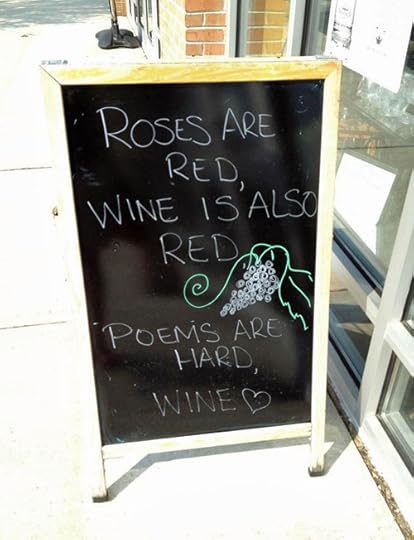 ROSES ARE
RED,
WINE IS ALSO
RED
POEMS ARE
HARD,
WINE♡